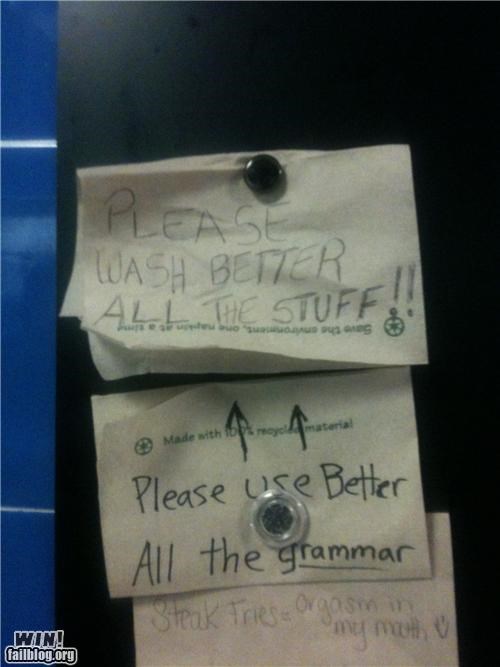 PLEASE
WASH BETTER
ALL THE STUFF!!
Save the environment, one napkin at a time
Made with 100% recycled material
Please use Better
All the grammar
Steak Fries = Orgasm in
my mouth
WIN!
failblog.org